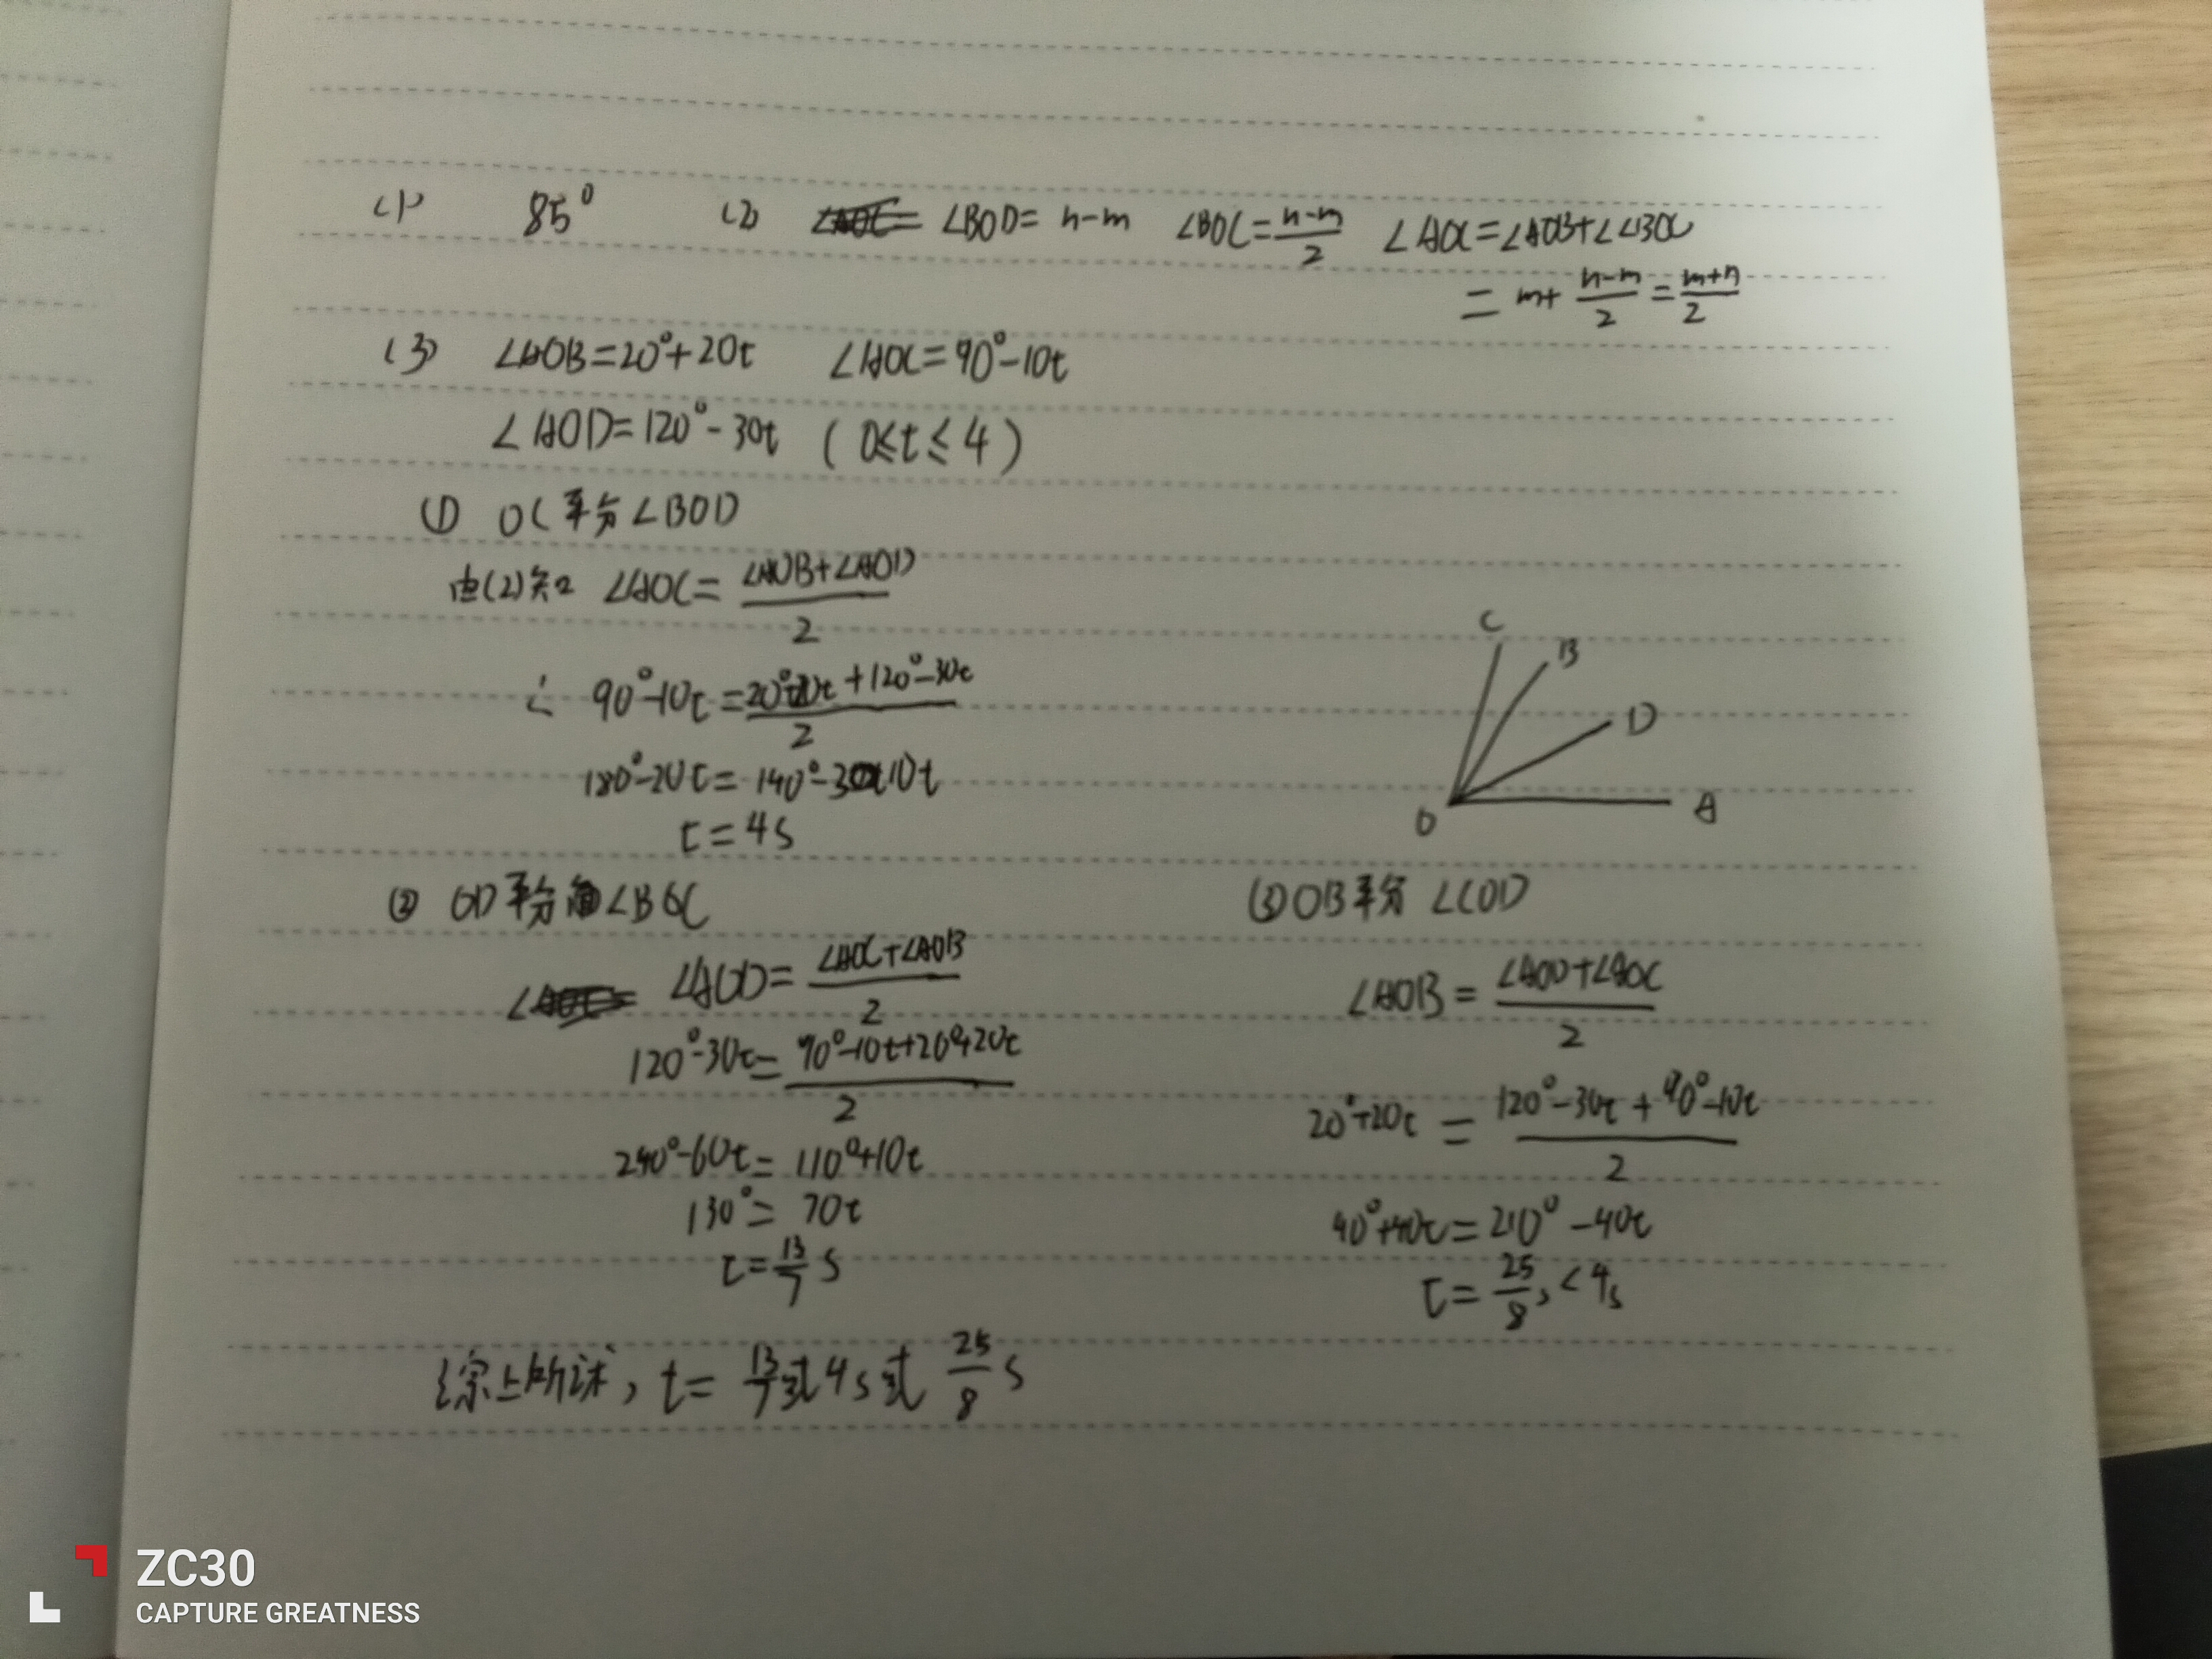 (1) 85° (2) ∠BOD= n-m ∠BOC=\frac{n-m}{2} ∠AOC=∠AOB+∠∠BOC
= m+\frac{n-m}{2}=\frac{m+n}{2}
(3) ∠AOB=20°+20t ∠AOC=90°-10t
∠AOD=120°-30t (0≤t≤4)
① OC平分∠BOD
由(2)知 ∠AOC=\frac{∠AOB+∠AOD}{2}
∴ 90°-10t=\frac{20°+20t+120°-30t}{2}
180°-20t=140°-10t
t=4s
C
B
D
O
A
② OD平分∠BOC
∠AOD=\frac{∠AOC+∠AOB}{2}
120°-30t=\frac{90°-10t+20°+20t}{2}
240°-60t=110°+10t
130°=70t
t=\frac{13}{7}s
③OB平分∠COD
∠AOB=\frac{∠AOD+∠AOC}{2}
20°+20t=\frac{120°-30t+90°-10t}{2}
40°+40t=210°-40t
t=\frac{25}{8}s<4s
综上所述,t=\frac{13}{7}或4s或\frac{25}{8}s
ZC30
CAPTURE GREATNESS